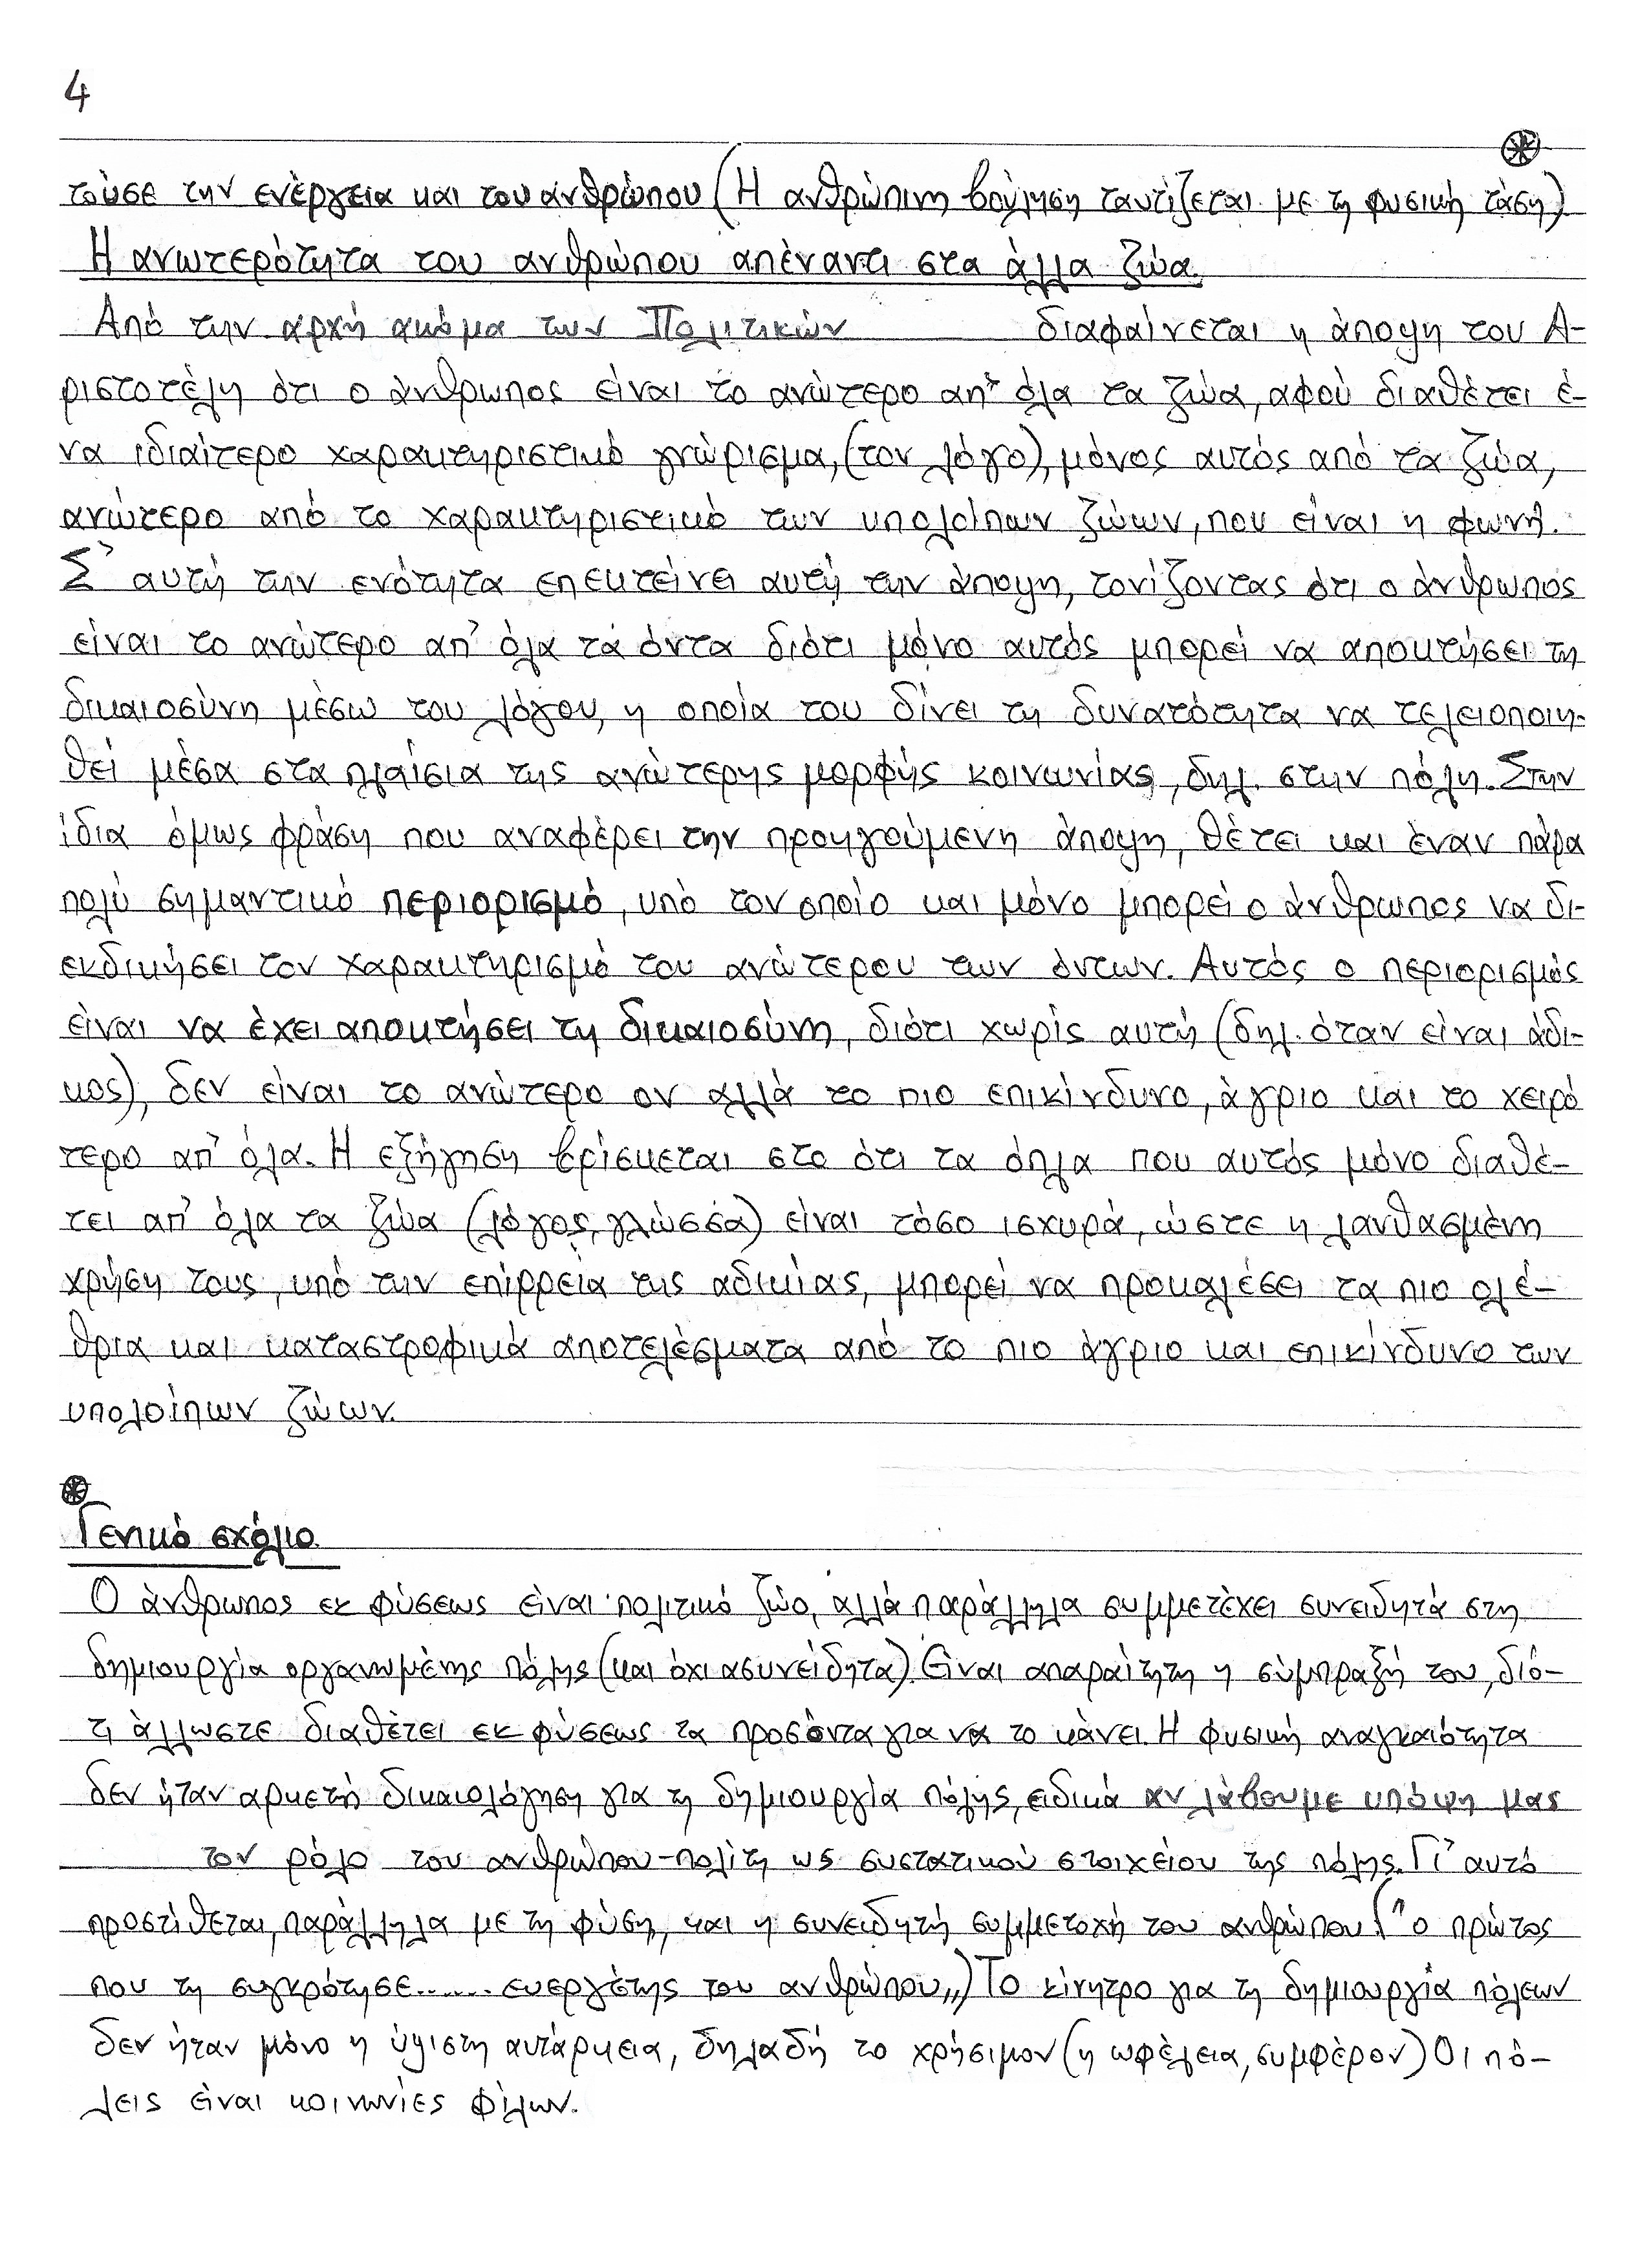 4
τούσε την ενέργεια και του ανθρώπου (Η ανθρώπινη βούληση ταυτίζεται με τη φυσική τάση)
Η ανωτερότητα του ανθρώπου απέναντι στα άλλα ζώα.
Από την αρχή ακόμα των Πολιτικών διαφαίνεται η άποψη του Α-
ριστοτέλη ότι ο άνθρωπος είναι το ανώτερο απ' όλα τα ζώα, αφού διαθέτει έ-
να ιδιαίτερο χαρακτηριστικό γνώρισμα, (τον λόγο), μόνος αυτός από τα ζώα,
ανώτερο από το χαρακτηριστικό των υπολοίπων ζώων, που είναι η φωνή.
Σ' αυτή την ενότητα επεκτείνει αυτή την άποψη, τονίζοντας ότι ο άνθρωπος
είναι το ανώτερο απ' όλα τα όντα διότι μόνο αυτός μπορεί να αποκτήσει τη
δικαιοσύνη μέσω του λόγου, η οποία του δίνει τη δυνατότητα να τελειοποιη-
θεί μέσα στα πλαίσια της ανώτερης μορφής κοινωνίας, δηλ. στην πόλη. Στην
ίδια όμως φράση που αναφέρει την προηγούμενη άποψη, θέτει και έναν πάρα
πολύ σημαντικό περιορισμό, υπό τον οποίο και μόνο μπορεί ο άνθρωπος να δι-
εκδικήσει τον χαρακτηρισμό του ανώτερου των όντων. Αυτός ο περιορισμός
είναι να έχει αποκτήσει τη δικαιοσύνη, διότι χωρίς αυτή (δηλ. όταν είναι άδι-
κος), δεν είναι το ανώτερο ον αλλά το πιο επικίνδυνο, άγριο και το χειρό
τερο απ' όλα. Η εξήγηση βρίσκεται στο ότι τα όπλα που αυτός μόνο διαθέ-
τει απ' όλα τα ζώα (λόγος, γλώσσα) είναι τόσο ισχυρά, ώστε η λανθασμένη
χρήση τους, υπό την επίρρεια της αδικίας, μπορεί να προκαλέσει τα πιο ολέ-
θρια και καταστροφικά αποτελέσματα από το πιο άγριο και επικίνδυνο των
υπολοίπων ζώων.
Γενικό σχόλιο
Ο άνθρωπος εκ φύσεως είναι πολιτικό ζώο, αλλά παράλληλα συμμετέχει συνειδητά στη
δημιουργία οργανωμένης πόλης (και όχι ασυνείδητα). Είναι απαραίτητη η σύμπραξή του, διό-
τι άλλωστε διαθέτει εκ φύσεως τα προσόντα για να το κάνει. Η φυσική αναγκαιότητα
δεν ήταν αρκετή δικαιολόγηση για τη δημιουργία πόλης, ειδικά αν λάβουμε υπόψη μας
τον ρόλο του ανθρώπου-πολίτη ως συστατικού στοιχείου της πόλης. Γι' αυτό
προστίθεται, παράλληλα με τη φύση, και η συνειδητή συμμετοχή του ανθρώπου. ("ο πρώτος
που τη συγκρότησε...... ευεργέτης του ανθρώπου,,) Το κίνητρο για τη δημιουργία πόλεων
δεν ήταν μόνο η ύψιστη αυτάρκεια, δηλαδή το χρήσιμον (η ωφέλεια, συμφέρον) Οι πό-
λεις είναι κοινωνίες φίλων.